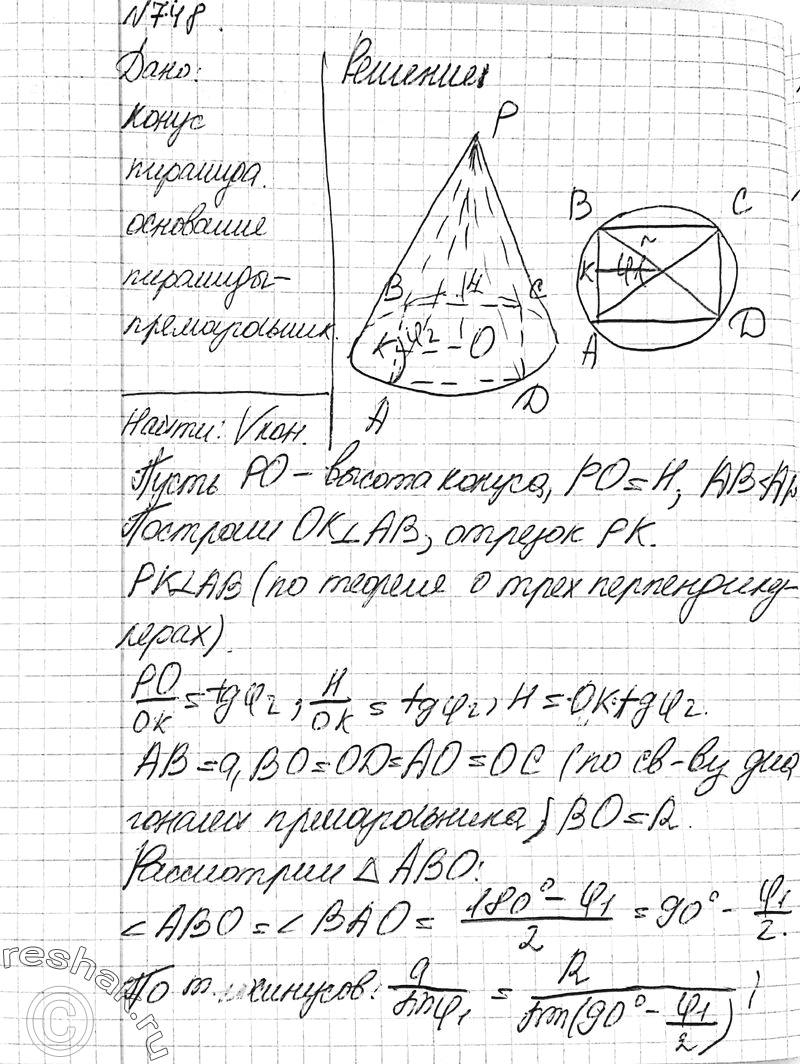 №748.
Дано:
Решение:
конус
пирамида.
основание
пирамиды-
прямоугольник.
P
B
H
C
K
φ2
O
A
D
B
C
K
φ1
A
D
Найти: Vкон.
Пусть PO – высота конуса, PO = H, AB<AD
Построим OK⊥AB, отрезок PK.
PK⊥AB (по теореме о трех перпендику-
лярах).
PO/OK = tgφ2, H/OK = tgφ2, H = OK·tgφ2.
AB = a, BO=OD=AO=OC (по св-ву диа
гоналей прямоугольника) BO = R.
Рассмотрим △ABO:
∠ABO = ∠BAO = (180° - φ1)/2 = 90° - φ1/2.
По т. синусов: a/sinφ1 = R/sin(90° - φ1/2);
reshak.ru
©